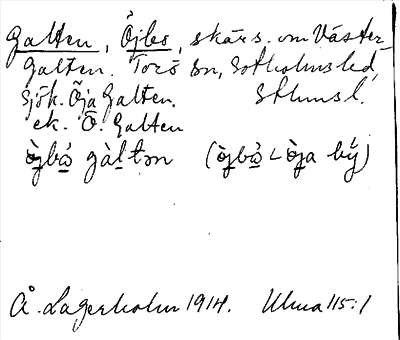 Galten, Öjbo, skärs. om Väster-
galten. Torö sn, Sotholms hd,
Sjök. Öja Galten. Sthms l.
ek. Ö. Galten
ò̤jbå̀ gàltən (ò̤jbå̀ < ò̤ja bý)
Å. Lagerholm 1914. Uhma 115:1